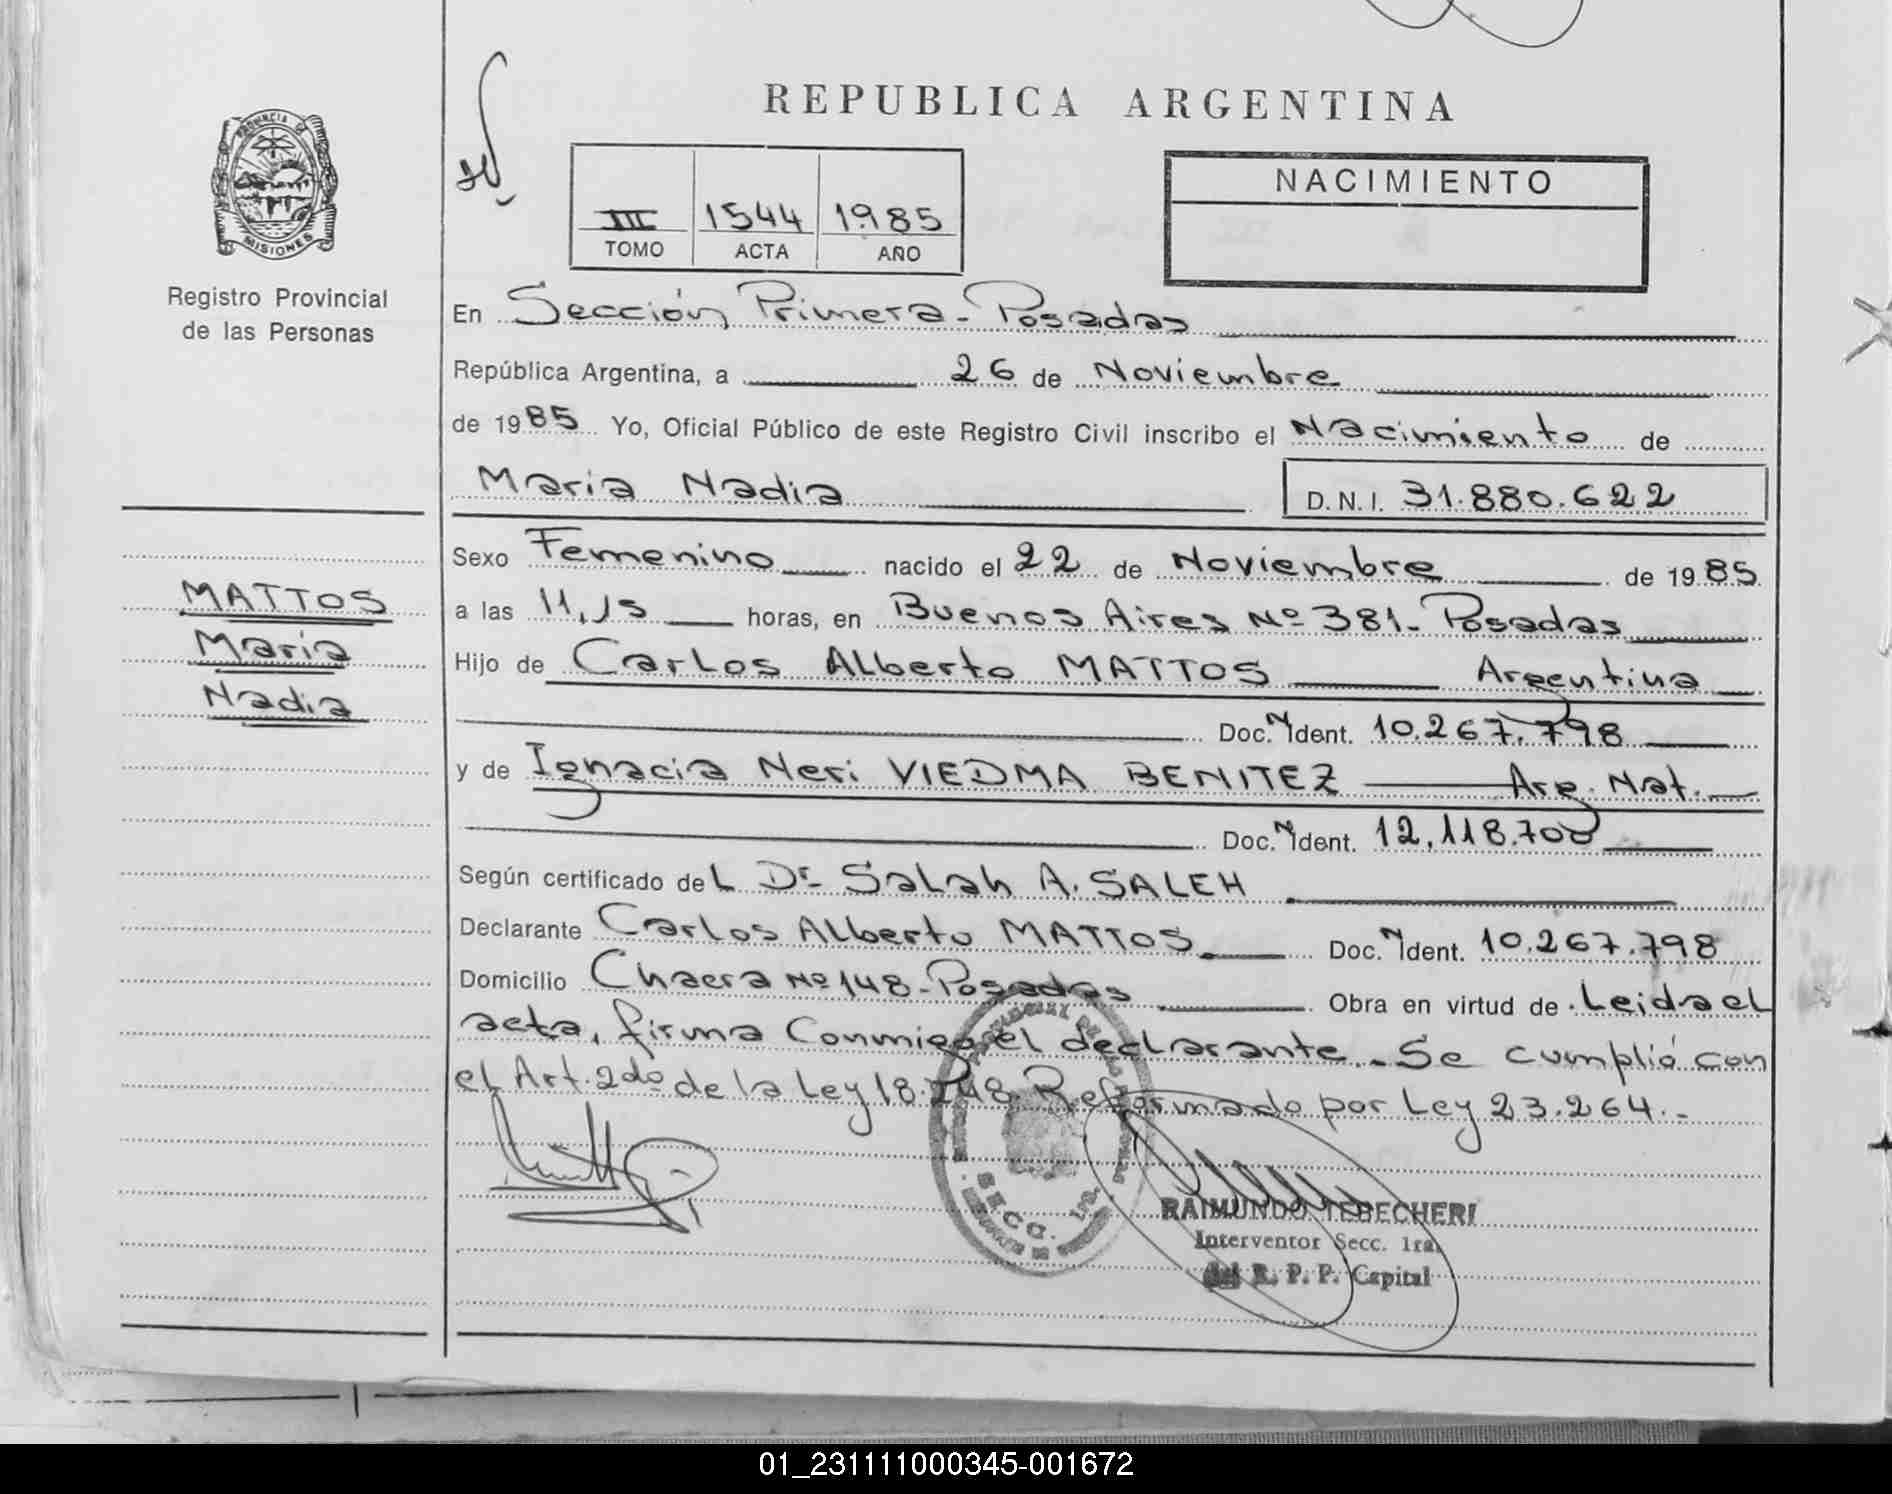 REPUBLICA ARGENTINA
PROVINCIA DE
MISIONES
Registro Provincial
de las Personas
III 1544 1985
TOMO ACTA AÑO
NACIMIENTO
En Sección Primera - Posadas
República Argentina, a 26 de Noviembre
de 1985 Yo, Oficial Público de este Registro Civil inscribo el Nacimiento de
Maria Nadia D.N.I. 31.880.622
MATTOS
Maria
Nadia
Sexo Femenino nacido el 22 de Noviembre de 1985
a las 11,15 horas, en Buenos Aires Nº 381 - Posadas
Hijo de Carlos Alberto MATTOS Argentina
Doc. N Ident. 10.267.798
y de Ignacia Neri VIEDMA BENITEZ Arg. Nat.
Doc. N Ident. 12.118.700
Según certificado del Dr. Salah A. SALEH
Declarante Carlos Alberto MATTOS Doc. N Ident. 10.267.798
Domicilio Chacra Nº 148 - Posadas Obra en virtud de Leida el
acta, firma Conmigo el declarante.- Se cumplió con
el Art. 2do de la Ley 18.248 Reformado por Ley 23.264.-
SECC. 1ra.
RAIMUNDO TEBECHERI
Interventor Secc. 1ra.
del R. P. P. Capital
01_231111000345-001672